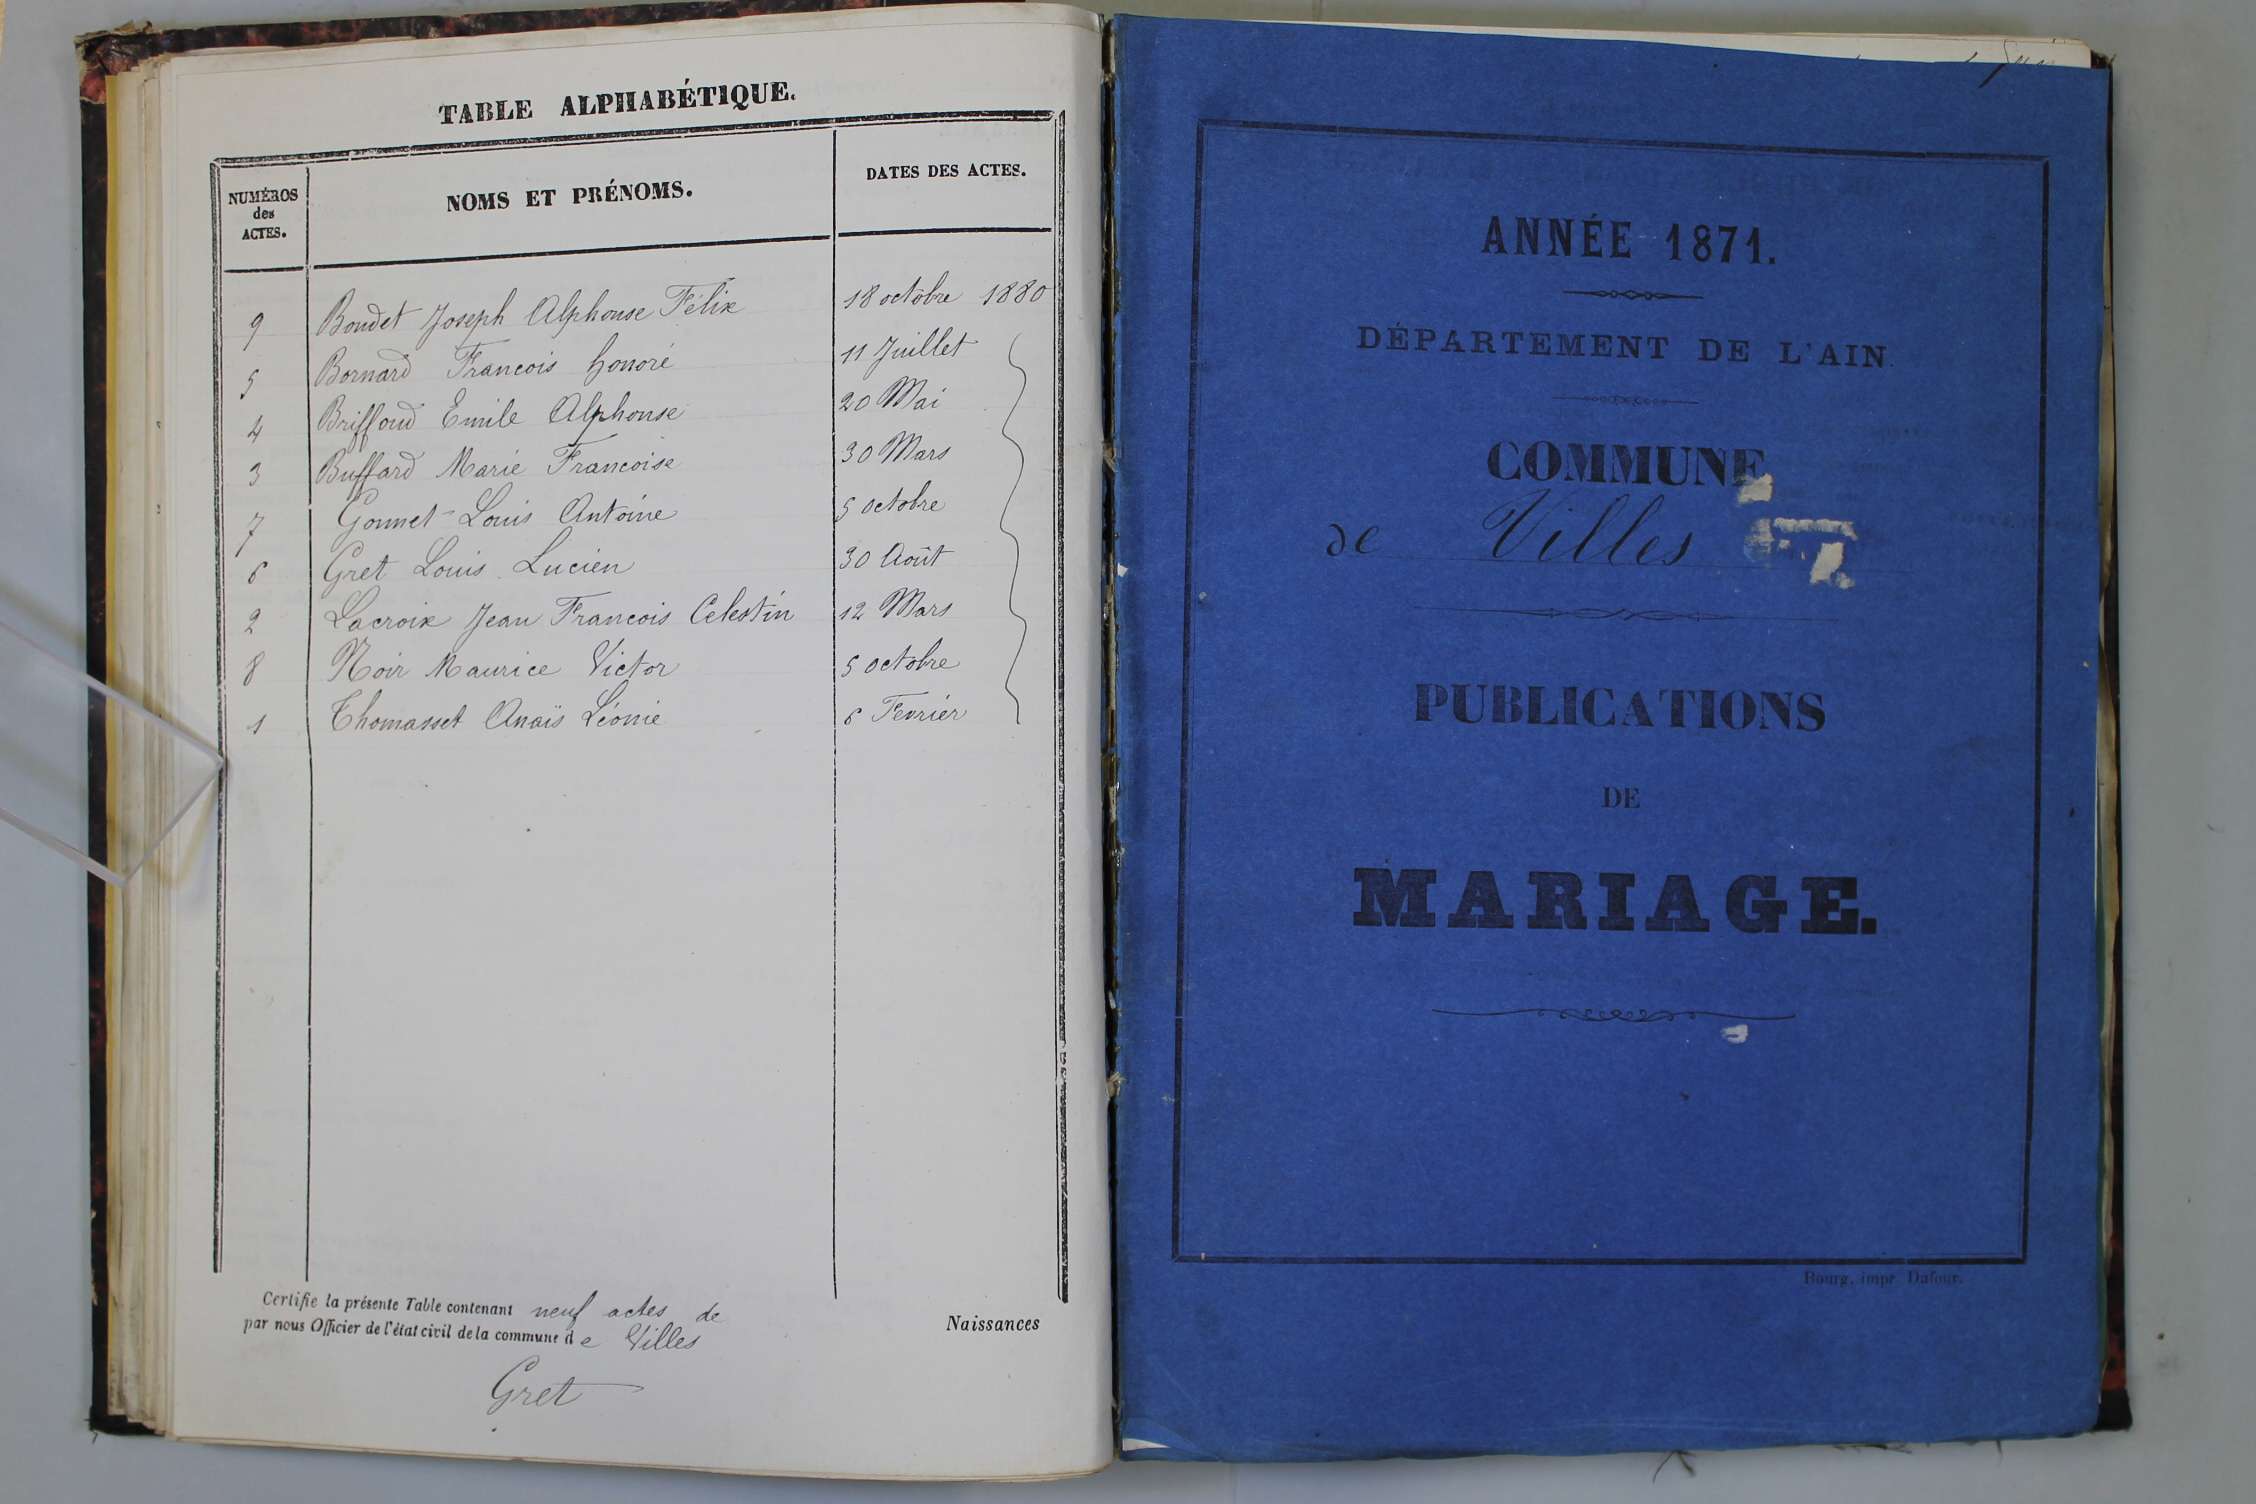 TABLE ALPHABÉTIQUE.
NUMÉROS
des
ACTES.
NOMS ET PRÉNOMS.
DATES DES ACTES.
9 Boudet Joseph Alphonse Félix 18 octobre 1880
5 Bornard Francois honoré 11 Juillet
4 Briffoud Emile Alphonse 20 Mai
3 Buffard Marie Francoise 30 Mars
7 Gonnet Louis Antoine 5 octobre
6 Gret Louis Lucien 30 Août
2 Lacroix Jean Francois Celestin 12 Mars
8 Noir Maurice Victor 5 octobre
1 Thomasset Anaïs Léonie 6 Fevrier
Certifie la présente Table contenant neuf actes de
par nous Officier de l'état civil de la commune de Villes
Naissances
Gret
ANNÉE 1871.
DÉPARTEMENT DE L'AIN.
COMMUNE
de Villes
PUBLICATIONS
DE
MARIAGE.
Bourg, impr. Dufour.